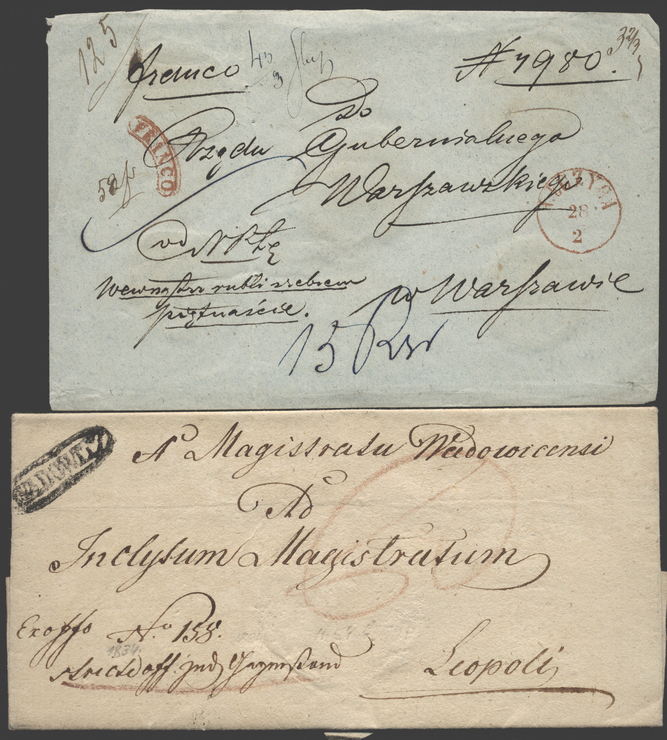 125
franco
N 7980.
32/3
FRANCO
do
Rządu Gubernialnego
Warszawskiego
28
2
od NPŁĘ
Wewnątrz rubli srebrem
piętnaście.
w Warszawie
15 Rsr
A Magistratu Wadowicensi
Ad
Inclytum Magistratum
Exoffo No 158.
1834
Leopoli